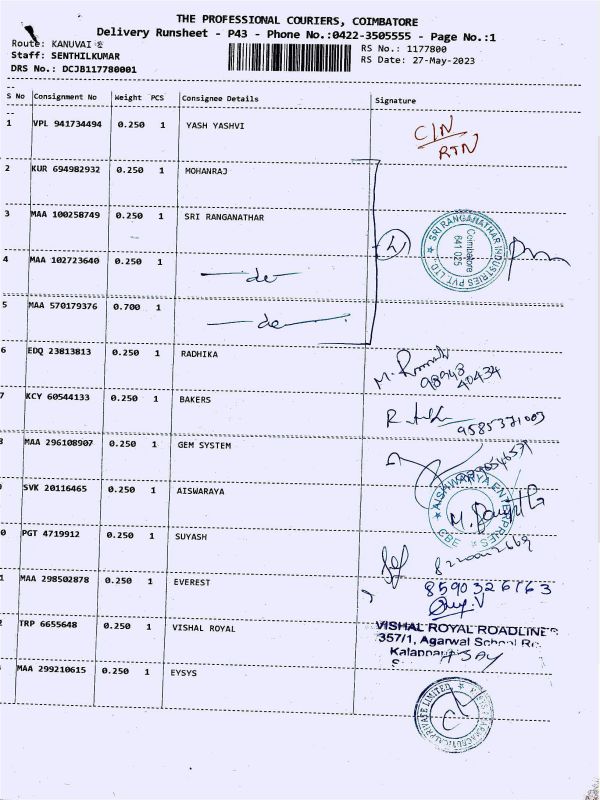 THE PROFESSIONAL COURIERS, COIMBATORE
Delivery Runsheet - P43 - Phone No.:0422-3505555 - Page No.:1
Route: KANUVAI 2
Staff: SENTHILKUMAR
DRS No.: DCJB117780001
RS No.: 1177800
RS Date: 27-May-2023
S No Consignment No Weight PCS Consignee Details Signature
1 VPL 941734494 0.250 1 YASH YASHVI C/N
RTN
2 KUR 694982932 0.250 1 MOHANRAJ
3 MAA 100258749 0.250 1 SRI RANGANATHAR
SRI RANGANATHAR INDUSTRIES PVT. LTD.
Coimbatore
641 025
4 MAA 102723640 0.250 1 do
5 MAA 570179376 0.700 1 do
6 EDQ 23813813 0.250 1 RADHIKA
98943
40434
7 KCY 60544133 0.250 1 BAKERS
9585371003
8 MAA 296108907 0.250 1 GEM SYSTEM
SVK 20116465 0.250 1 AISWARAYA
AISHWARYA ENTERPRISES
CBE
0 PGT 4719912 0.250 1 SUYASH
1 MAA 298502878 0.250 1 EVEREST 8590326763
2 TRP 6655648 0.250 1 VISHAL ROYAL
VISHAL ROYAL ROADLINES
357/1, Agarwal School Rd.
MAA 299210615 0.250 1 EYSYS
PRIVATE LIMITED